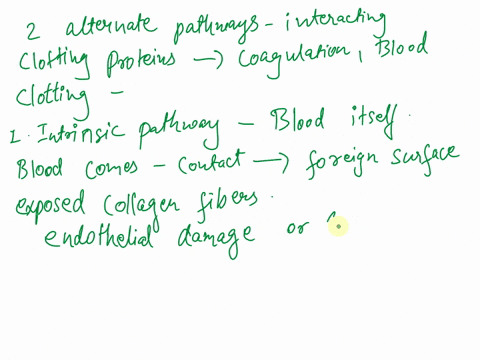 2 alternate pathways - interacting
Clotting Proteins → Coagulation, Blood
Clotting -
1. Intrinsic pathway - Blood itself.
Blood Comes - Contact → foreign surface
exposed Collagen fibers.
endothelial damage or